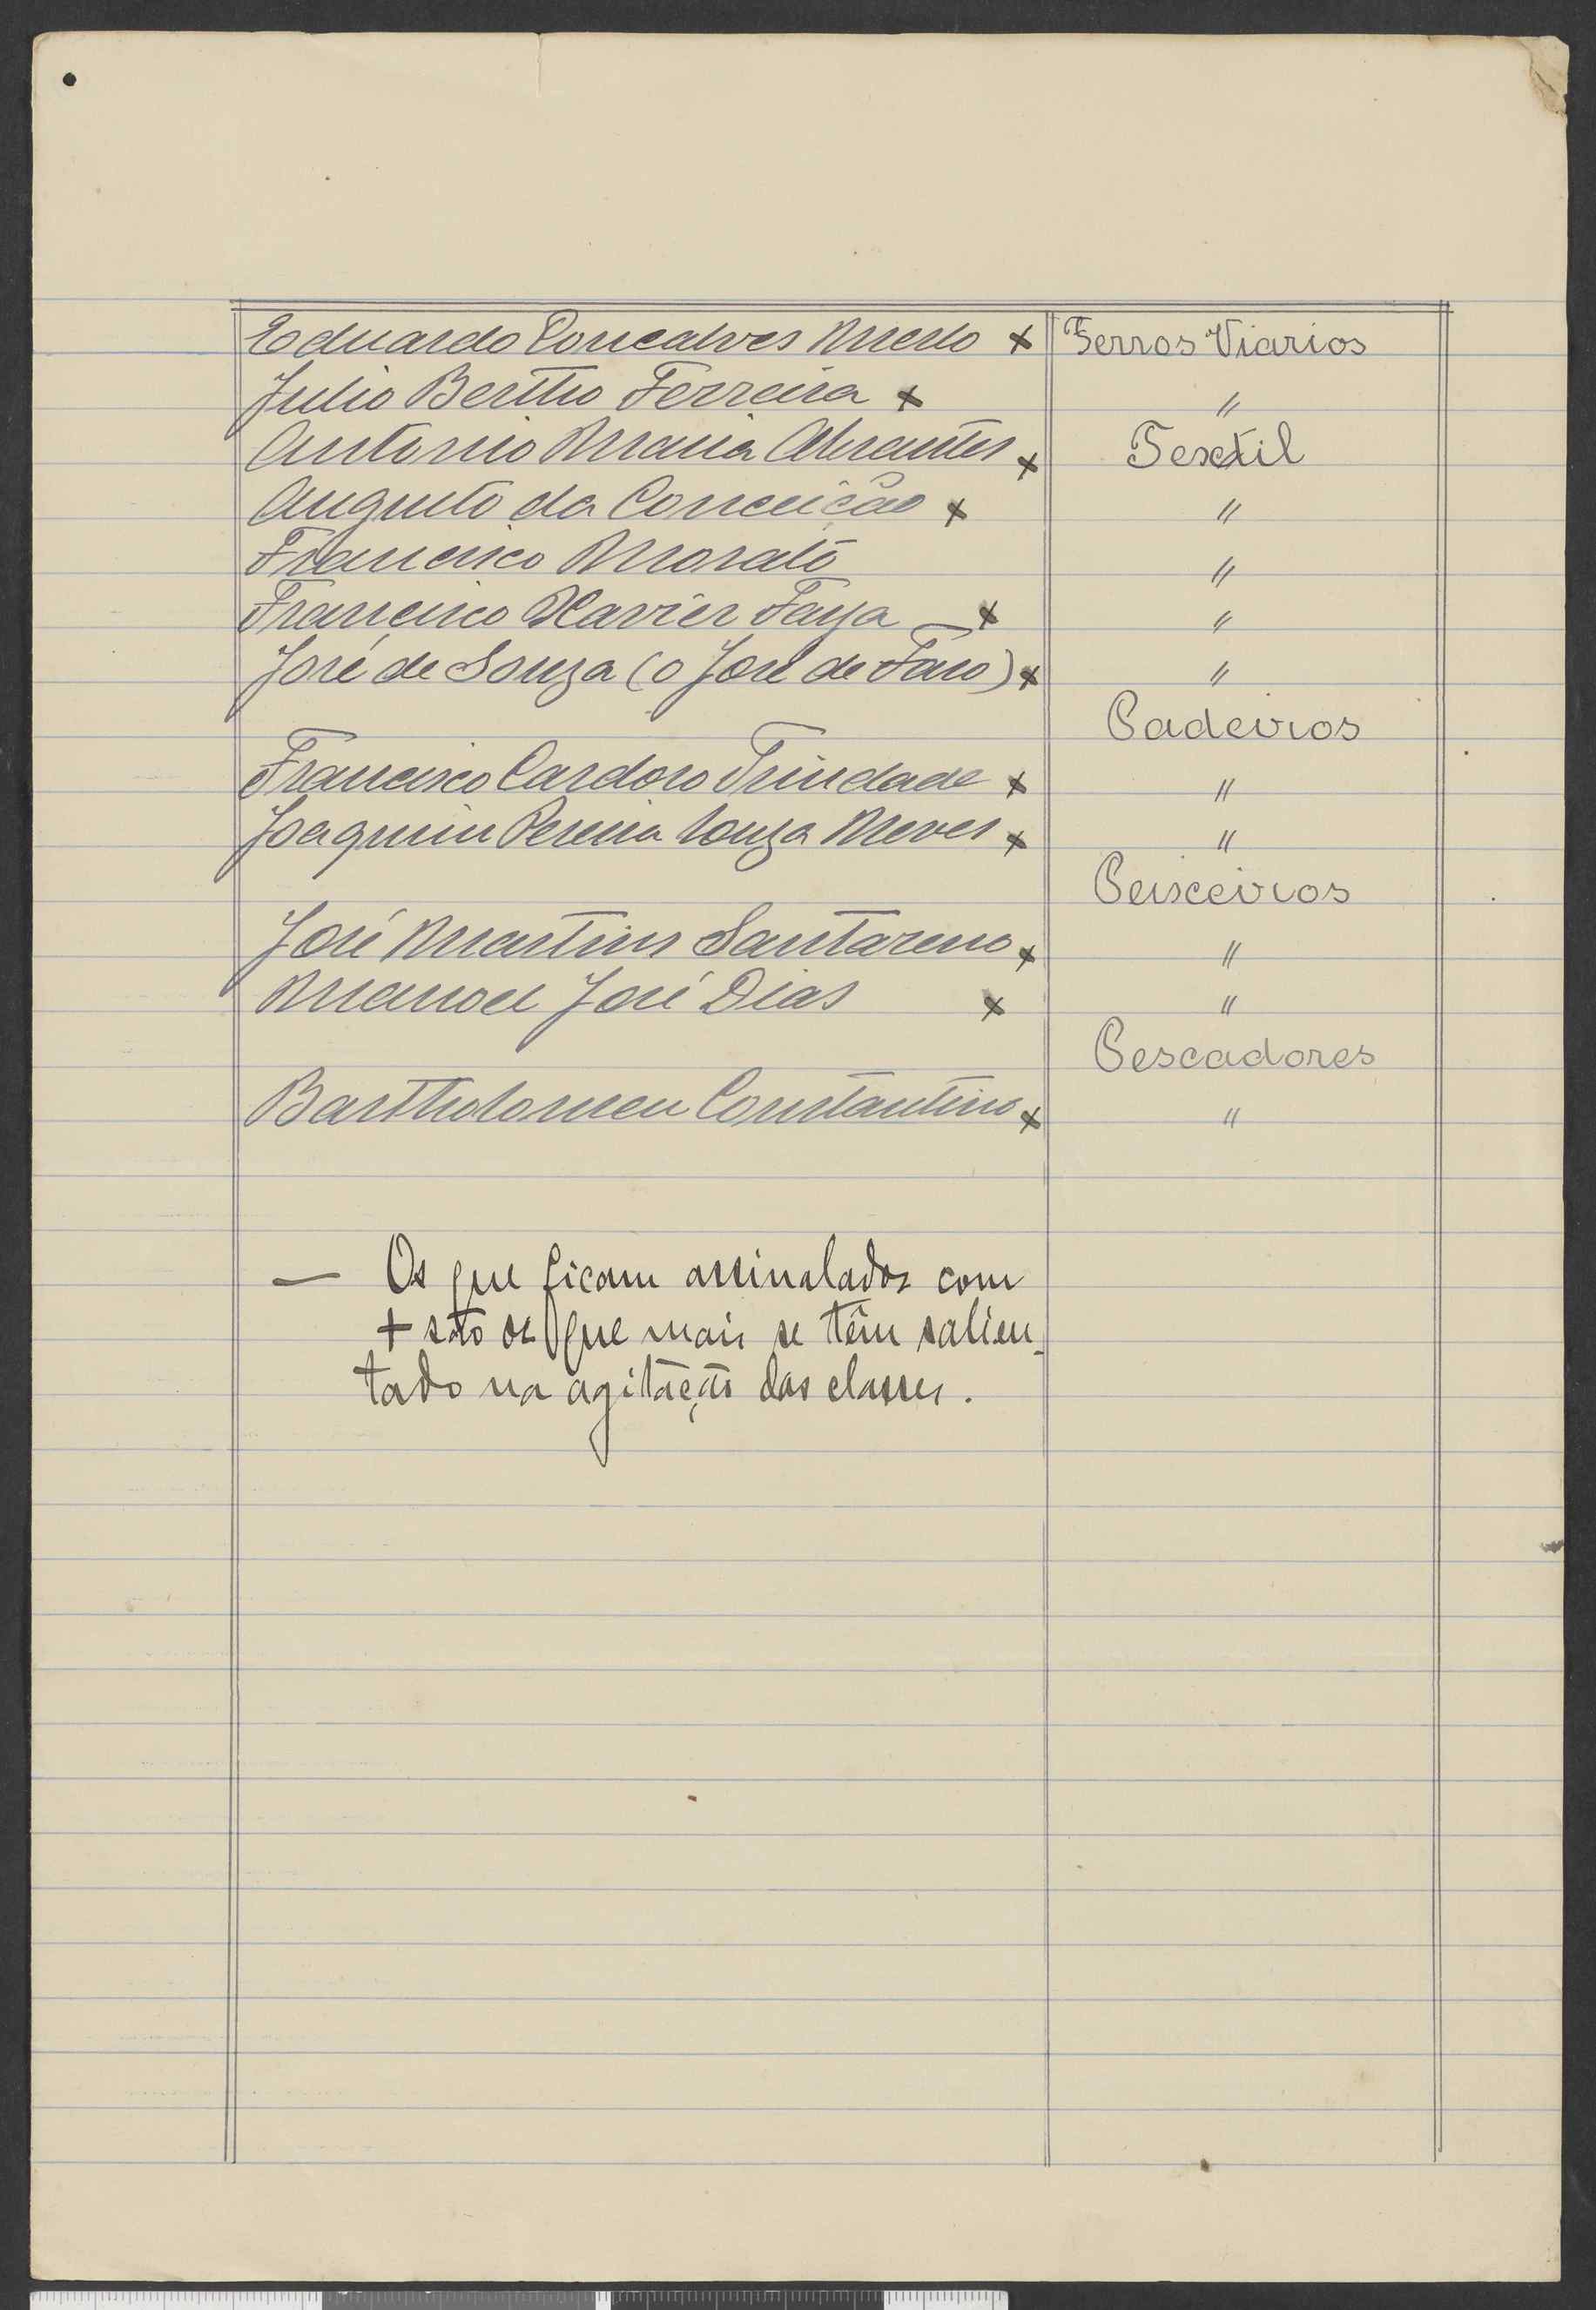 Eduardo Goncalves Mello x Ferros Viarios
Julio Bertho Ferreira x "
Antonio Maria Abrantes x Textil
Augusto da Conceição x "
Francisco Morato "
Francisco Xavier Faya x "
José de Souza (o José de Faro) x "
Padeiros
Francisco Cardoso Trindade x "
Joaquim Pereira Souza Neves x "
Peixeiros
José Martins Santareno x "
Manoel José Dias x "
Pescadores
Bartholomeu Constantino x "
— Os que ficam assinalados com
+ são os que mais se têm salien-
tado na agitação das classes.